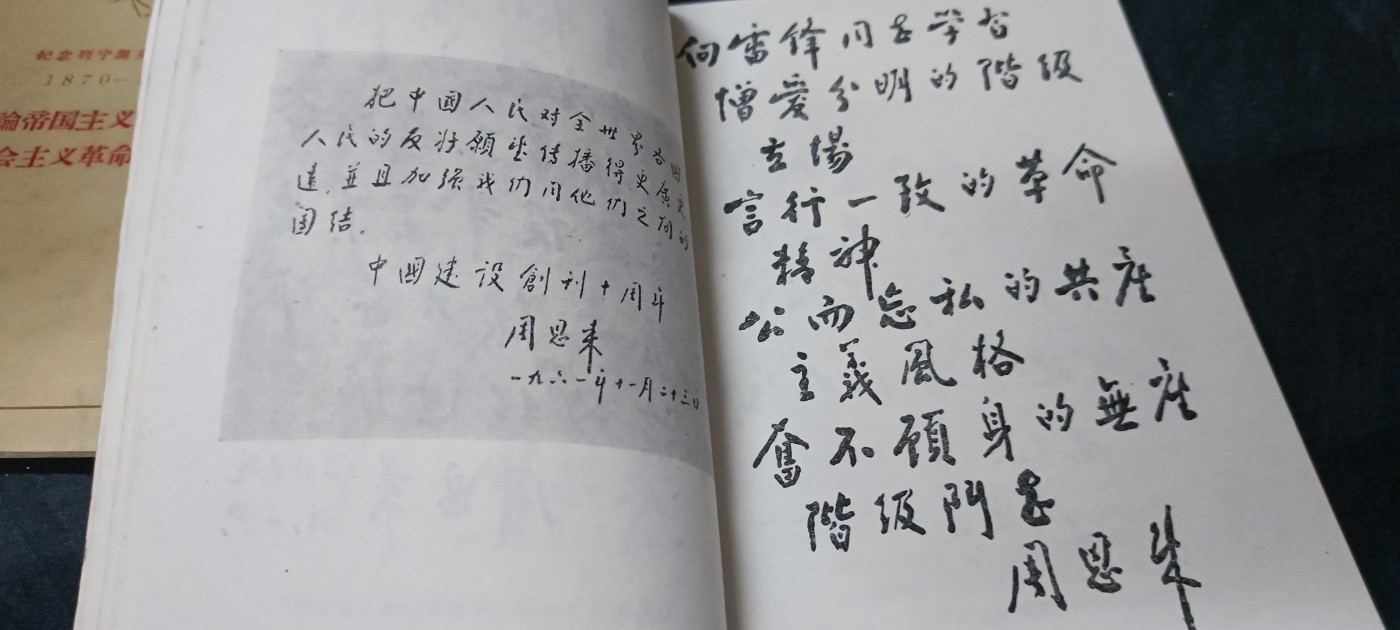 纪念列宁诞
1870—
論帝国主义
会主义革命
把中國人民对全世界各國
人民的友好願望传播得更廣更
遠，並且加强我们同他们之间的
团结。
中國建设創刊十周年
周恩来
一九六一年十一月二十三日
向雷锋同志学习
憎爱分明的階级
立場
言行一致的革命
精神
公而忘私的共産
主義風格
奮不顧身的無産
階级鬥志
周恩来